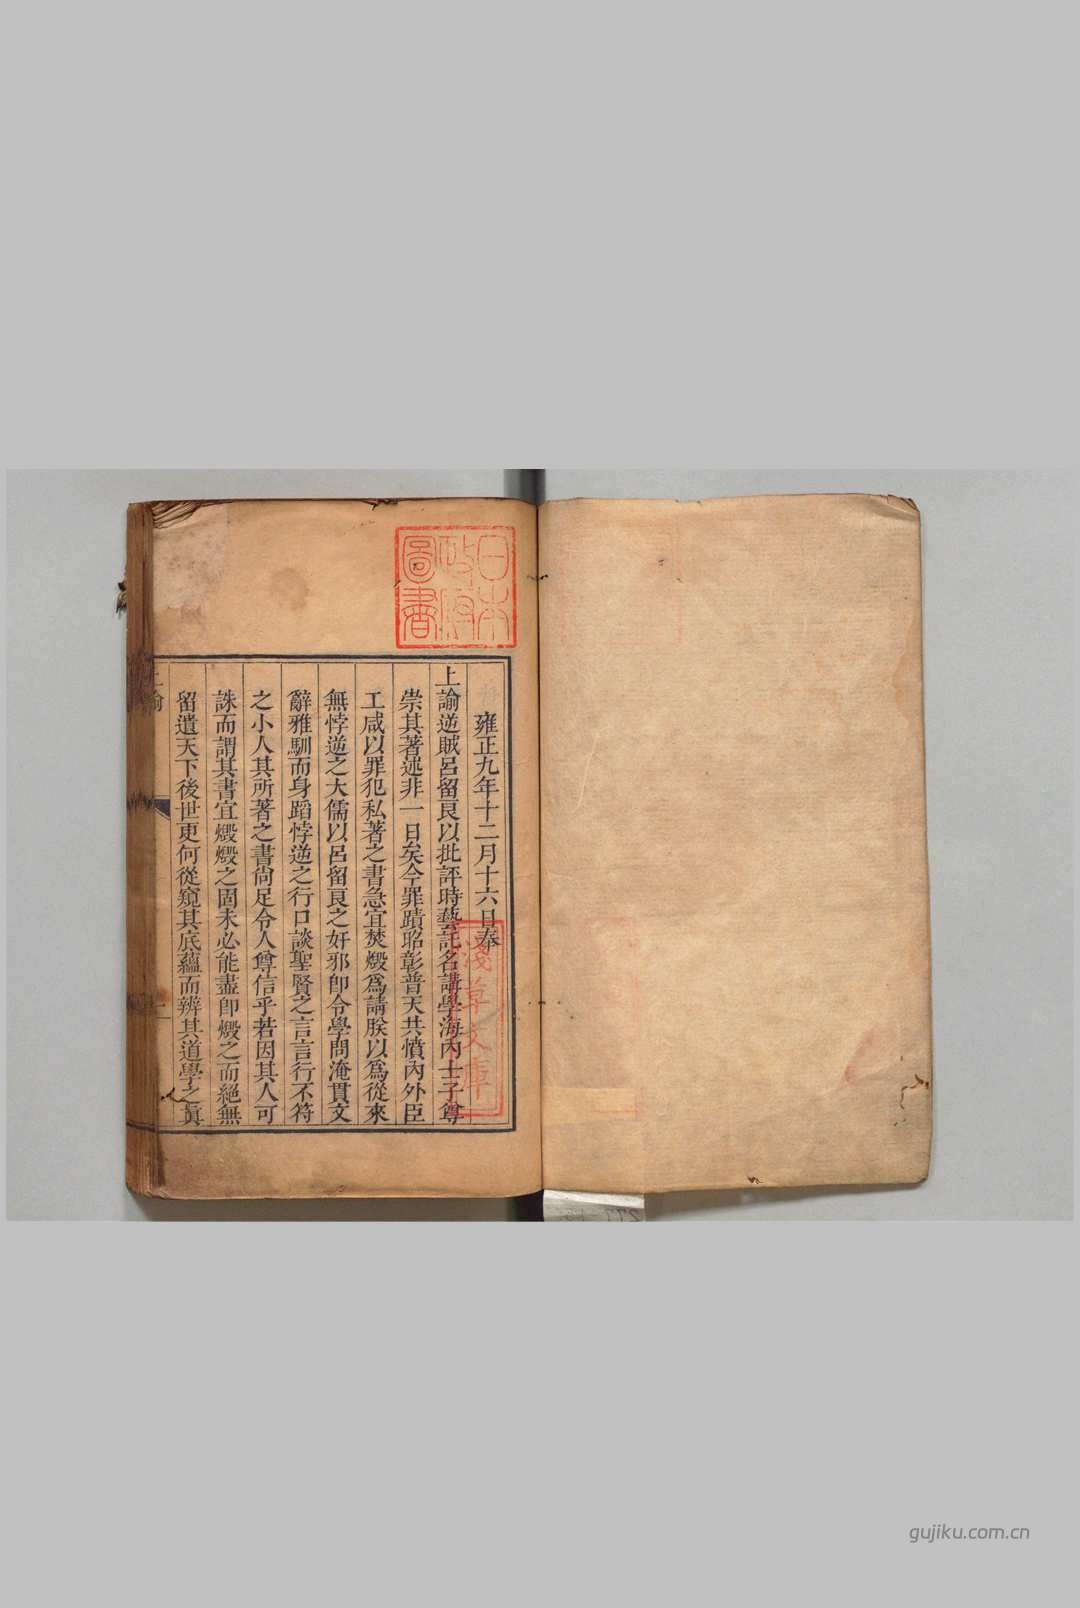 日本
政府
圖書
雍正九年十二月十六日奉
上諭逆賊呂留良以批評時藝託名講學海內士子尊
崇其著述非一日矣今罪蹟昭彰普天共憤內外臣
工咸以罪犯私著之書急宜焚燬爲請朕以爲從來
無悖逆之大儒以呂留良之奸邪卽令學問淹貫文
辭雅馴而身蹈悖逆之行口談聖賢之言言行不符
之小人其所著之書尙足令人尊信乎若因其人可
誅而謂其書宜燬燬之固未必能盡卽燬之而絕無
留遺天下後世更何從窺其底蘊而辨其道學之眞
上諭
一
淺草文庫
gujiku.com.cn